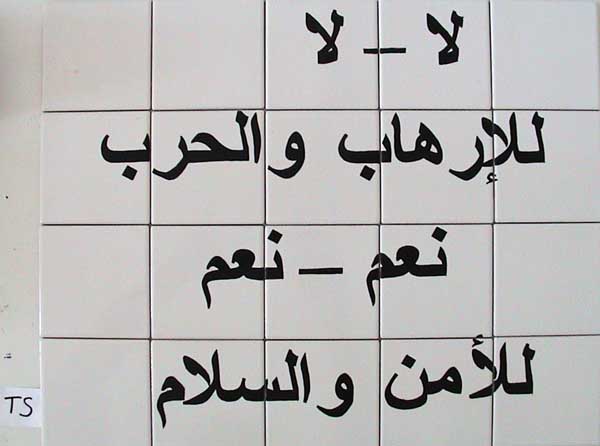 لا – لا
للإرهاب والحرب
نعم – نعم
للأمن والسلام
TS